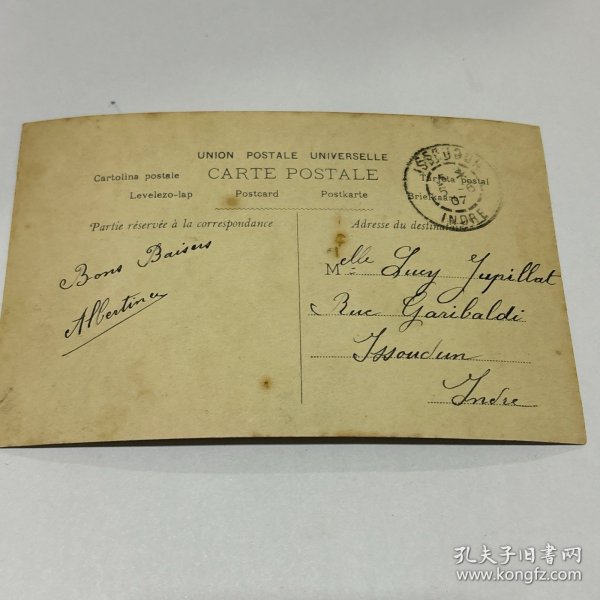 UNION POSTALE UNIVERSELLE
CARTE POSTALE
Cartolina postale
Tarjeta postal
Levelezo-lap Postcard Postkarte Briefkaart
Partie réservée à la correspondance
Adresse du destinataire
ISSOUDUN
07
INDRE
Bons Baisers
Albertine
Melle Lucy Jupillat
Rue Garibaldi
Issoudun
Indre
孔夫子旧书网
www.kongfz.com